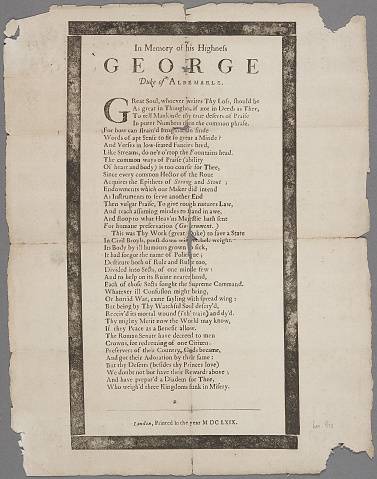 In Memory of his Highness
GEORGE
Duke of ALBEMARLE.
GReat Soul, whoever writes Thy Loss, should be
As great in Thoughts, if not in Deeds as Thee,
To tell Mankinde thy true deserts of Praise
In purer Numbers than the common phrase.
For how can
Words of apt Sense to fit so great a Minde?
And Verses in low-seated Fancies bred,
Like Streams, do ne'r o'rtop the Fountains head.
The common ways of Praise (ability
Of heart and body) is too course for Thee,
Since every common Hector of the Rout
Acquires the Epithets of Strong and Stout;
Endowments which our Maker did intend
As Instruments to serve another End
Then vulgar Praise, To give rough natures Law,
And teach assuming mindes to stand in awe,
And stoop to what Heav'ns Majestie hath sent
For humane preservation (Government.)
This was Thy Work (great Duke) to save a State
In Civil Broyls, prest down with Rebels weight.
In Body by ill humours grown sick,
It had forgot the name of Politique;
Destitute both of Rule and Ruler too,
Divided into Sects, of one minde few:
And to help on its Ruine nearer hand,
Each of those Sects sought the Supreme Command.
Whatever ill Confusion might bring,
Or horrid War, came sayling with spread wing:
But being by Thy Watchful Soul descry'd,
Receiv'd its mortal wound (I'th' train) and dy'd.
Thy mighty Merit now the World may know,
If they Peace as a Benefit allow.
The Roman Senate have decreed to men
Crowns, for redeeming of one Citizen:
Preservers of their Country, Gods became,
And got their Adoration by their fame:
But thy Deserts (besides thy Princes love)
We doubt not but have their Reward above;
And have prepar'd a Diadem for Thee,
Who weigh'd three Kingdoms sunk in Misery.
London, Printed in the year MDCLXIX.